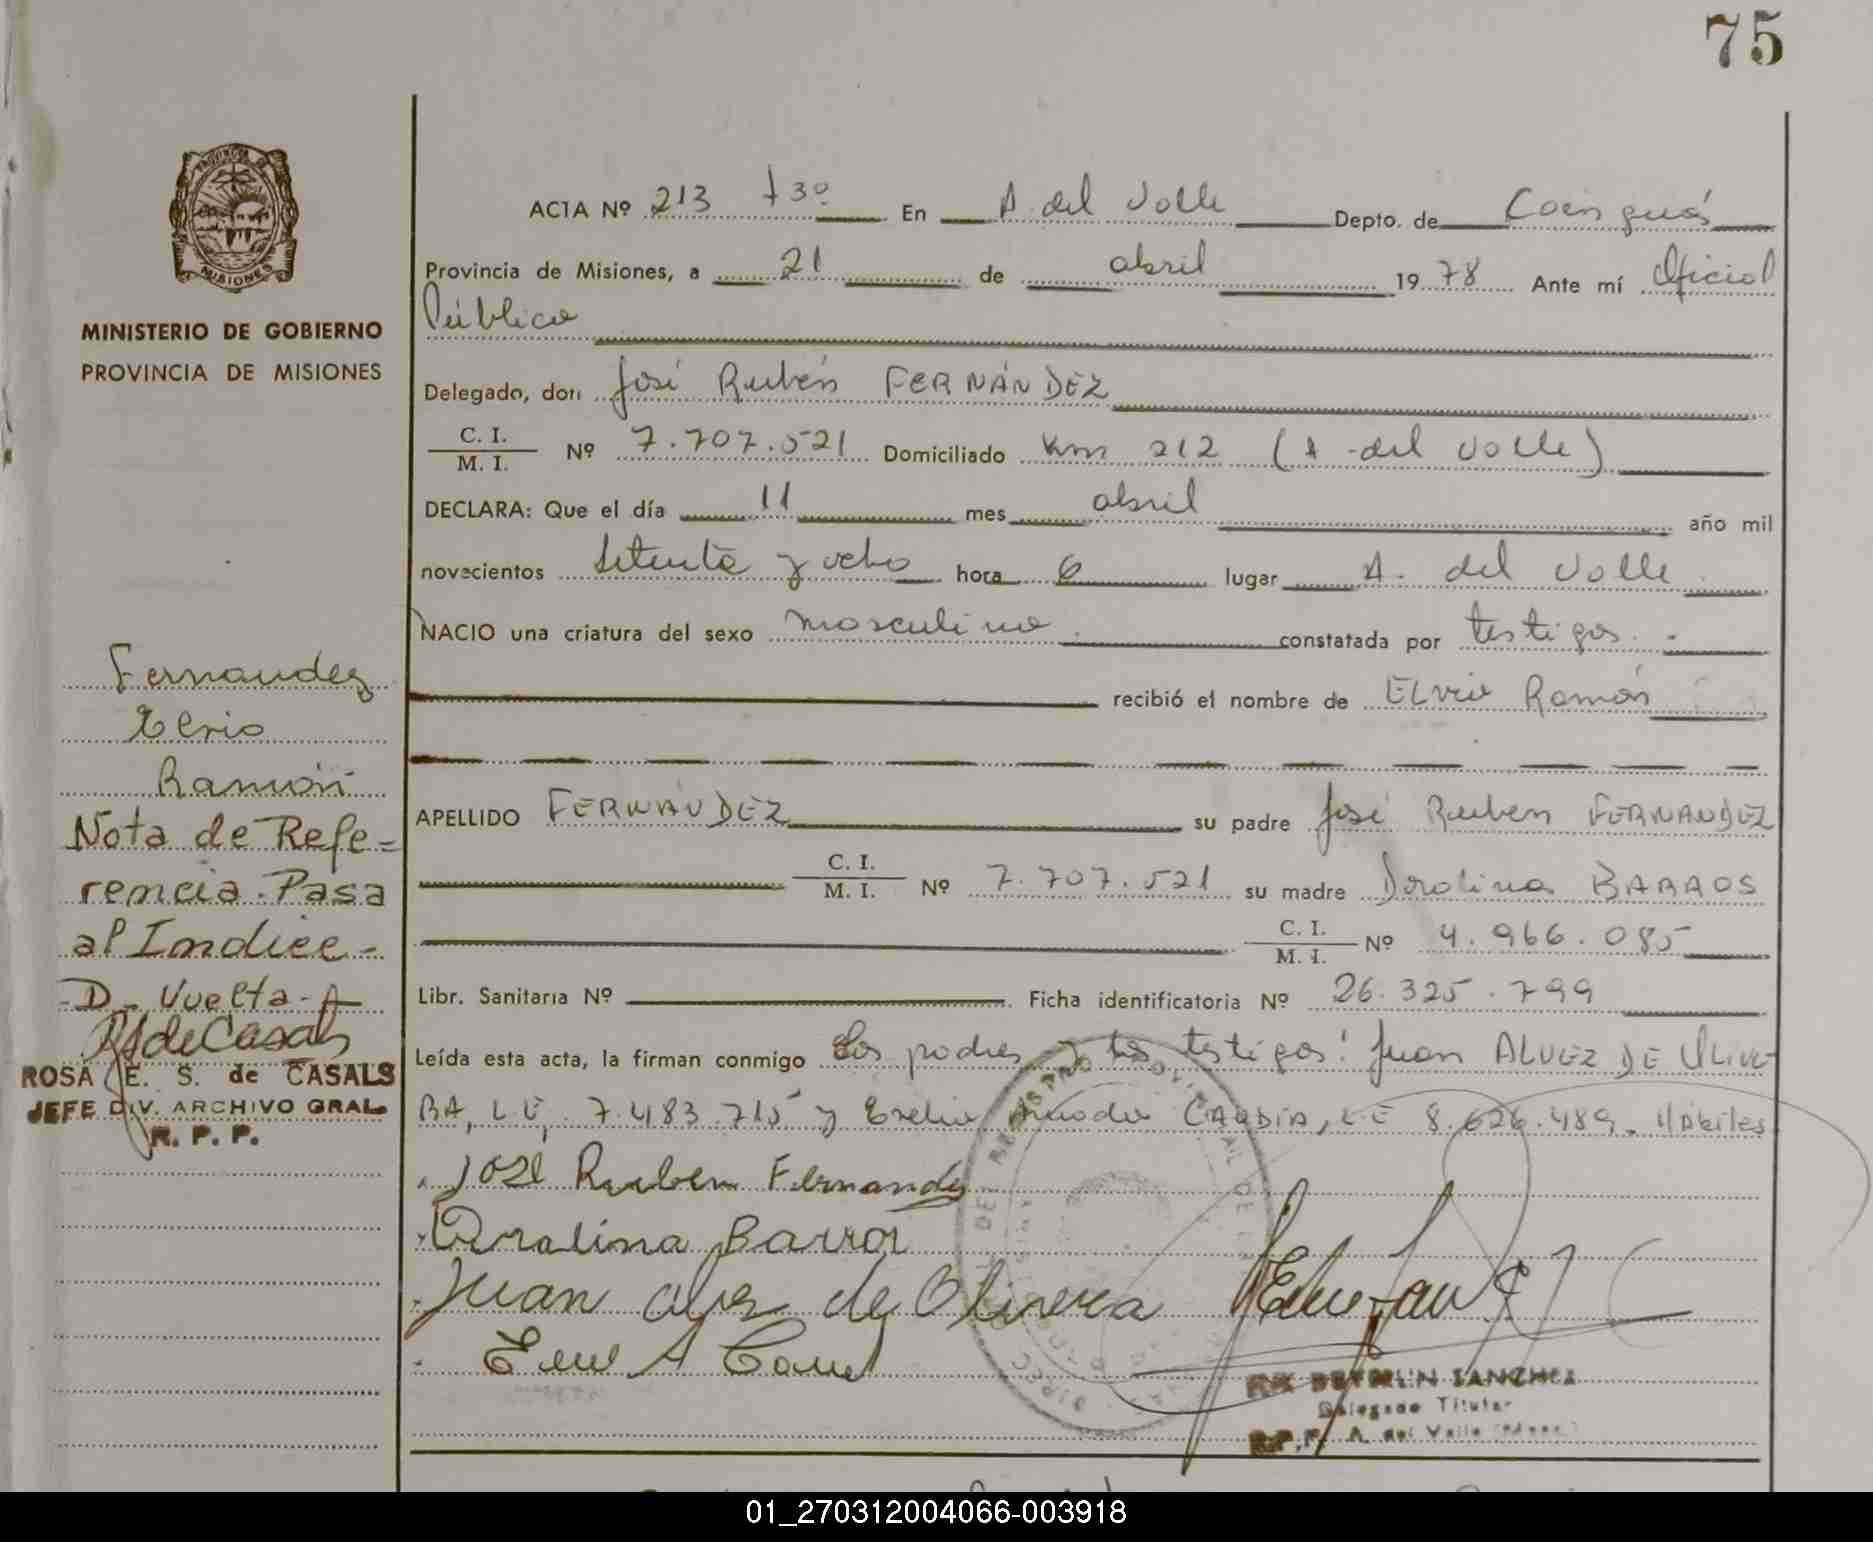 75
ACTA Nº 213 T 3º En A. del Valle Depto. de Cainguás
Provincia de Misiones, a 21 de abril 1978 Ante mí Oficial
Público
Delegado, don José Rubén FERNÁNDEZ
C. I.
M. I. Nº 7.707.521 Domiciliado Km 212 (A. del Valle)
DECLARA: Que el día 11 mes abril año mil
novecientos setenta y ocho hora 6 lugar A. del Valle
NACIO una criatura del sexo masculino constatada por testigos.
recibió el nombre de ELVIO Ramón
APELLIDO FERNÁNDEZ su padre José Ruben FERNANDEZ
C. I.
M. I. Nº 7.707.521 su madre Dorolina BARROS
C. I.
M. I. Nº 4.966.085
Libr. Sanitaria Nº Ficha identificatoria Nº 26.325.799
Leída esta acta, la firman conmigo Los padres y los testigos: Juan ALVEZ DE OLIVE-
RA, L.E, 7.483.715 y CANDIA, L.E 8.626.489. Hábiles
José Ruben Fernandez
Doralina Barros
Juan alvez de Olivera
DELEGADO Titular
R.P.P. A. del Valle
PROVINCIA DE
MISIONES
MINISTERIO DE GOBIERNO
PROVINCIA DE MISIONES
Fernandez
Elvio
Ramón
Nota de Refe=
rencia. Pasa
al Indice -
D - Vuelta -
RS de Casals
ROSA E. S. de CASALS
JEFE DIV. ARCHIVO GRAL
R. P. P.
01_270312004066-003918